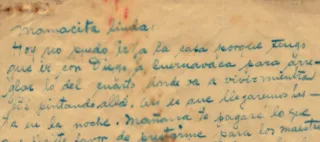 Mamacita linda:
Hoy no puedo ir a la casa porque tengo
que ir con Diego a Cuernavaca para arre-
glar lo del cuarto donde va a vivir mientras
esté pintando allá. Así es que llegaremos has-
ta en la noche. Mañana te pagaré lo que
favor de prestarme para los maestros